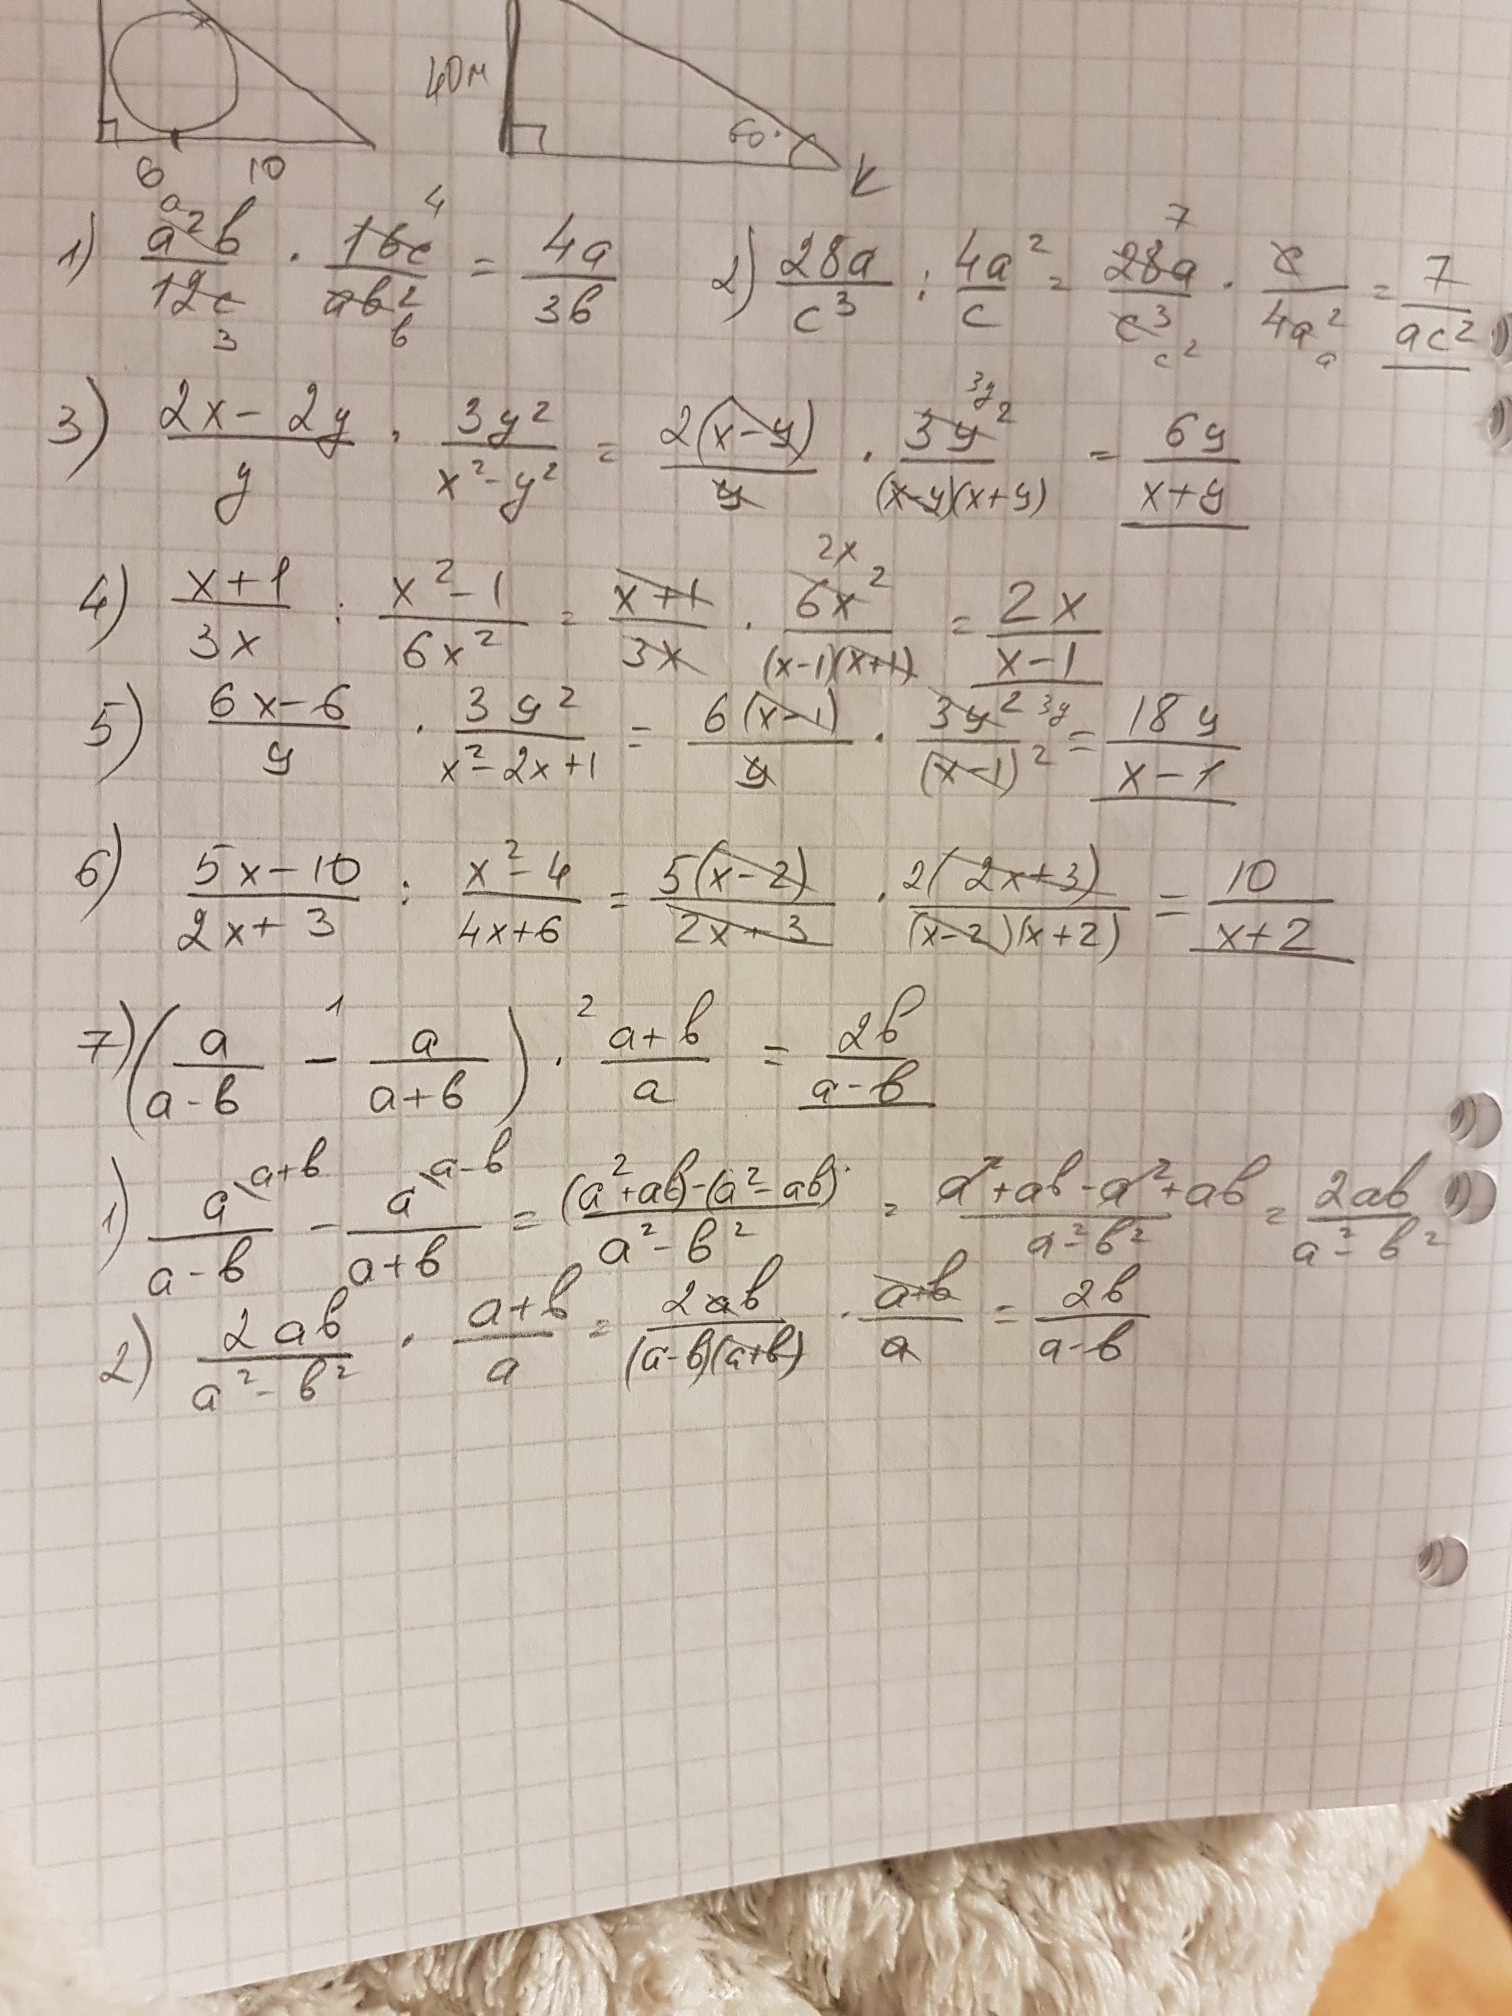 40м 60° K
6 10
1) a²b/12c · 16c/ab² = 4a/3b 2) 28a/c³ : 4a²/c = 28a/c³ · c/4a² = 7/ac²
3) 2x-2y/y · 3y²/x²-y² = 2(x-y)/y · 3y²/(x-y)(x+y) = 6y/x+y
4) x+1/3x : x²-1/6x² = x+1/3x · 6x²/(x-1)(x+1) = 2x/x-1
5) 6x-6/y · 3y²/x²-2x+1 = 6(x-1)/y · 3y²/(x-1)² = 18y/x-1
6) 5x-10/2x+3 : x²-4/4x+6 = 5(x-2)/2x+3 · 2(2x+3)/(x-2)(x+2) = 10/x+2
7) (a/a-b - a/a+b) · a+b/a = 2b/a-b
1) a\a+b/a-b - a\a-b/a+b = (a²+ab)-(a²-ab)/a²-b² = a²+ab-a²+ab/a²-b² = 2ab/a²-b²
2) 2ab/a²-b² · a+b/a = 2ab/(a-b)(a+b) · a+b/a = 2b/a-b